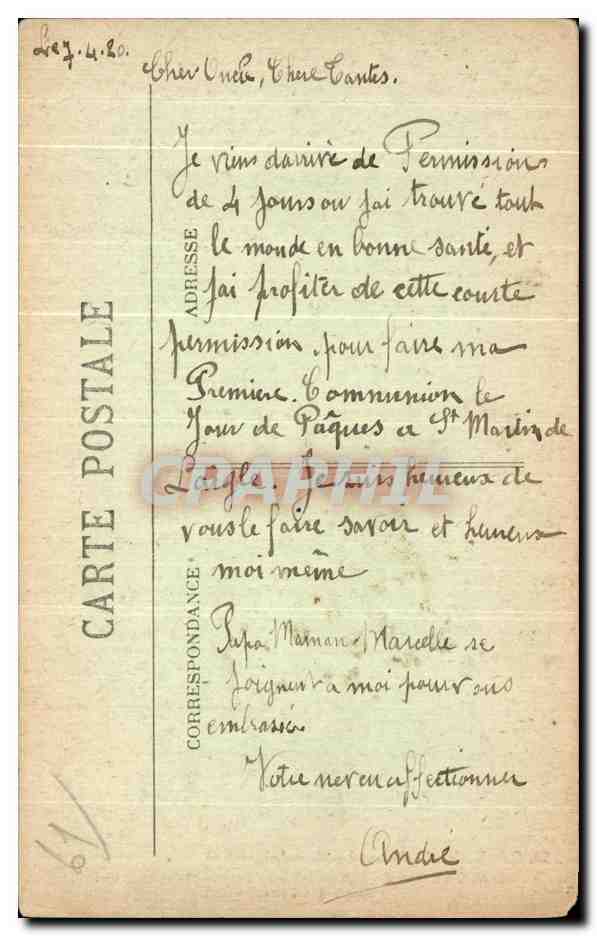 Le 7.4.20.
Cher Oncle, Chere Tantes.
Je viens d'arrivé de Permissions
de 4 Jours ou J'ai trouvé tout
le monde en bonne santé, et
J'ai profiter de cette courte
permission, pour faire ma
Premiere. Communion le
Jour de Pâques a St Martin de
Laigle. Je suis heureux de
vous le faire savoir et heureux
moi même
Papa Maman Marcelle se
Joignent a moi pour vous
embrassé
Votre neveu affectionner
André
CARTE POSTALE
ADRESSE
CORRESPONDANCE
CPARAMA CARTAPHIL
61